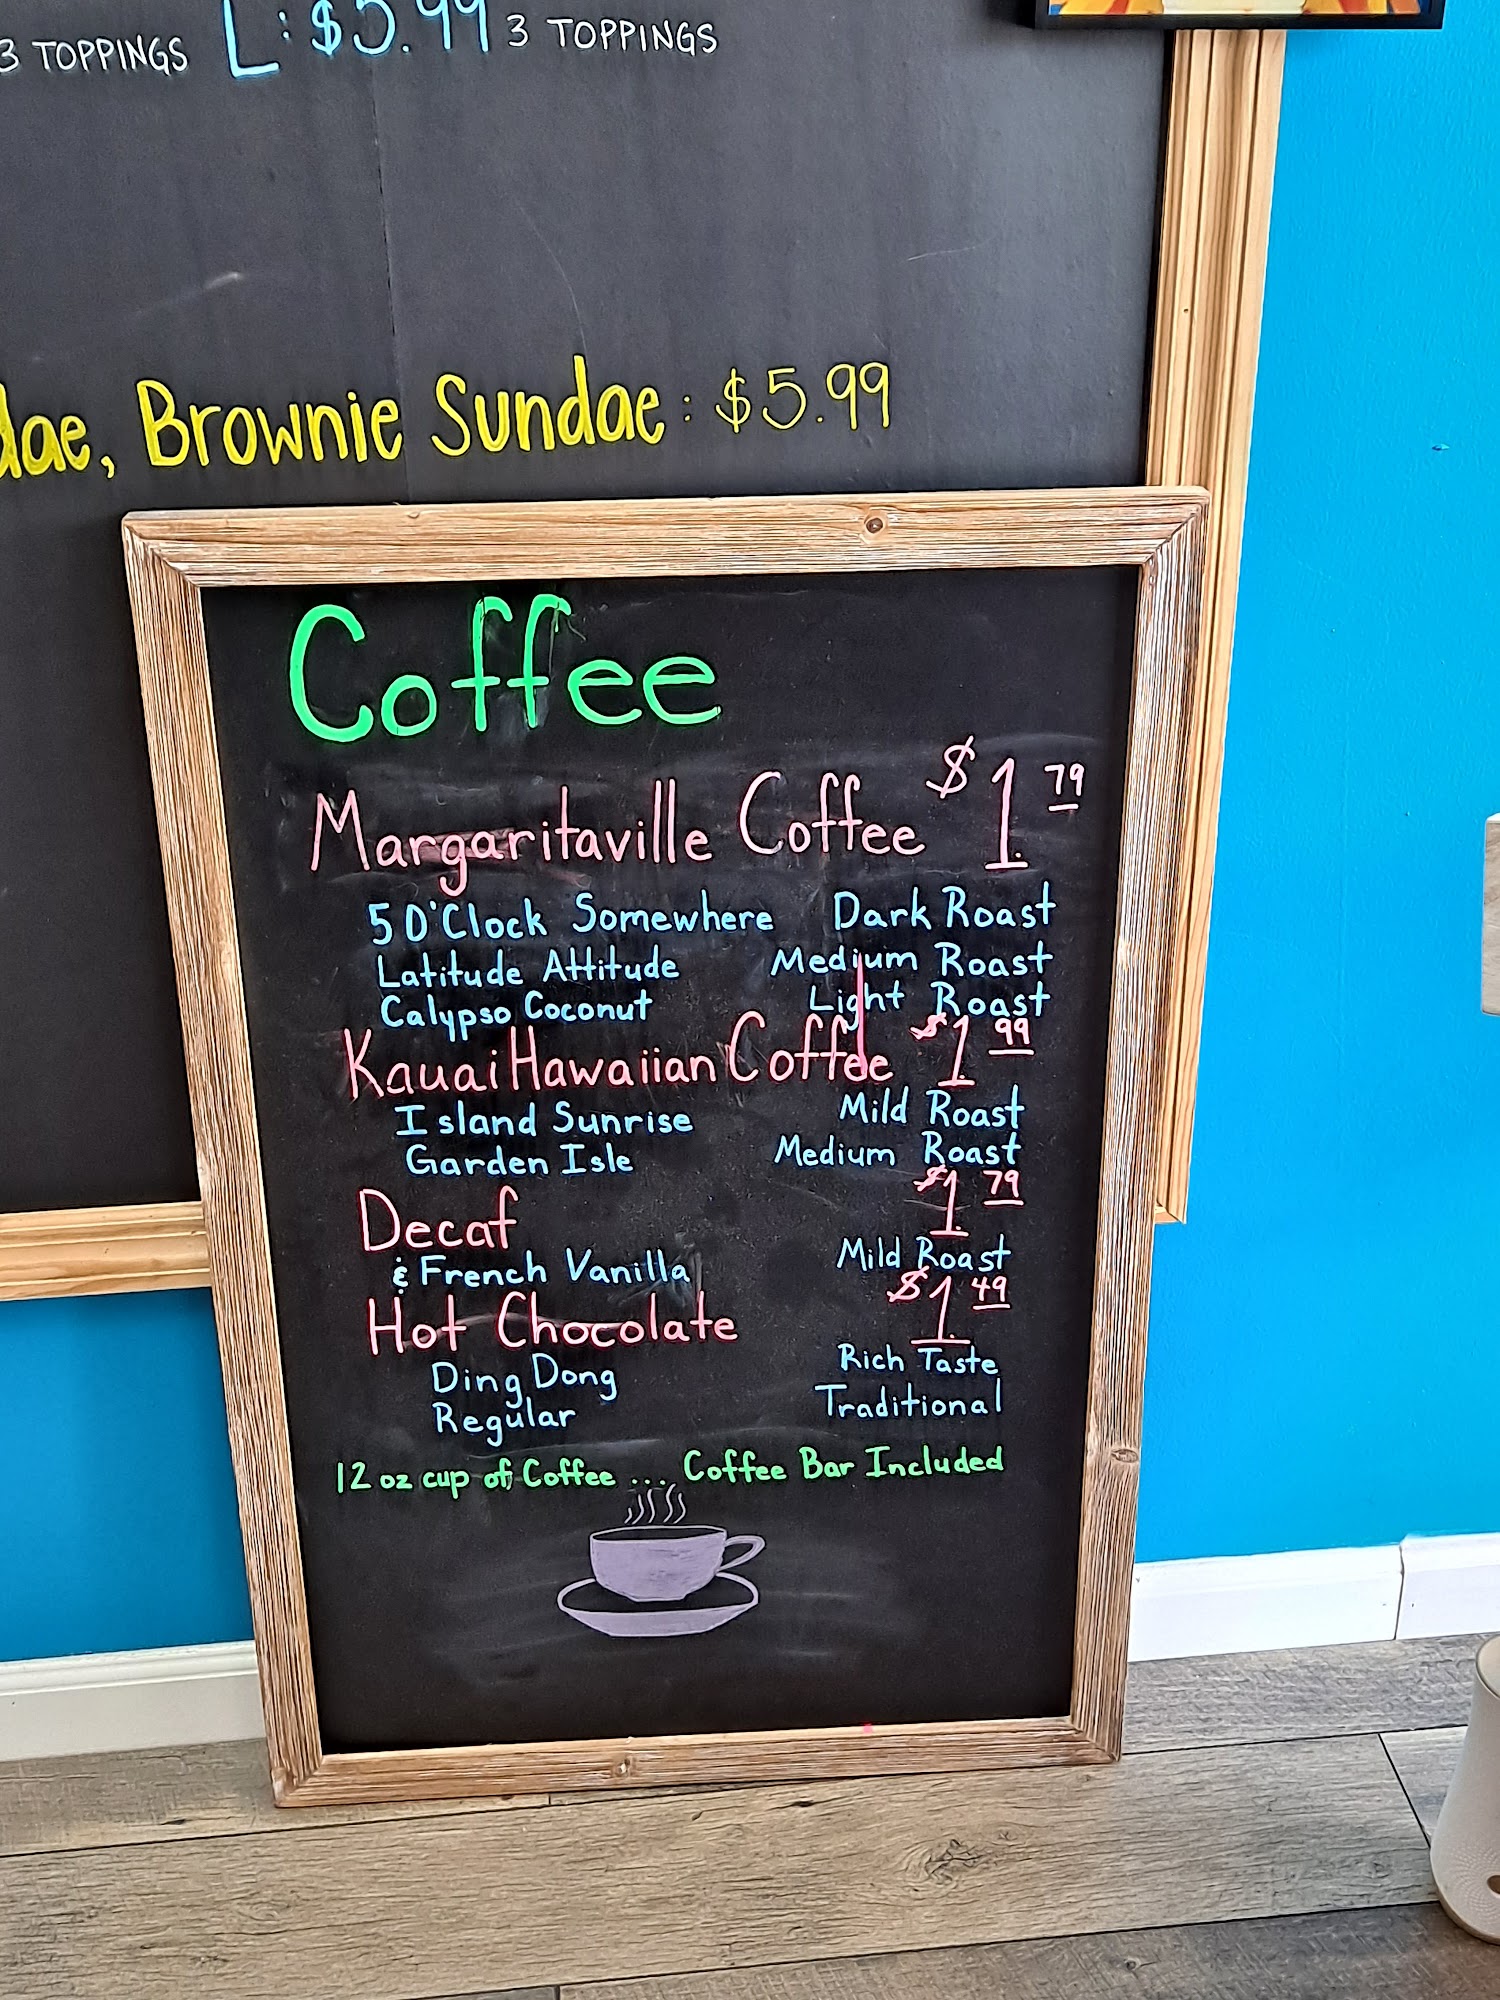 3 TOPPINGS L: $5.99 3 TOPPINGS
dae, Brownie Sundae: $5.99
Coffee
Margaritaville Coffee $1.79
5 O'Clock Somewhere Dark Roast
Latitude Attitude Medium Roast
Calypso Coconut Light Roast
Kauai Hawaiian Coffee $1.99
Island Sunrise Mild Roast
Garden Isle Medium Roast
Decaf $1.79
& French Vanilla Mild Roast
Hot Chocolate $1.49
Ding Dong Rich Taste
Regular Traditional
12 oz cup of Coffee ... Coffee Bar Included